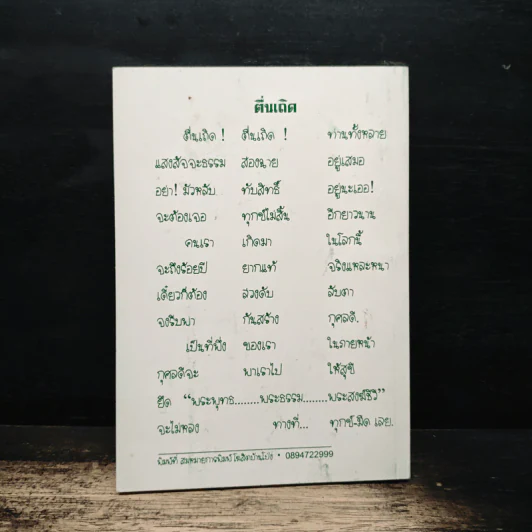 ตื่นเถิด
ตื่นเถิด ! ตื่นเถิด ! ท่านทั้งหลาย
แสงสัจจะธรรม สองฉาย อยู่เสมอ
อย่า! มัวหลับ ทับสิทธิ์ อยู่นะเออ!
จะต้องเจอ ทุกข์ไม่สิ้น อีกยาวนาน
คนเรา เกิดมา ในโลกนี้
จะถึงร้อยปี ยากแท้ จริงแหละหนา
เดี๋ยวก็ต้อง ล่วงดับ ลับตา
จงรีบพา กันสร้าง กุศลดี.
เป็นที่พึ่ง ของเรา ในภายหน้า
กุศลดีจะ พาเราไป ให้สุขี
ยึด “พระพุทธ........พระธรรม.......พระสงฆ์ชีวี”
จะไม่หลง ทางที่... ทุกข์-มืด เลย.
พิมพ์ที่ สมหมายการพิมพ์ • 0894722999